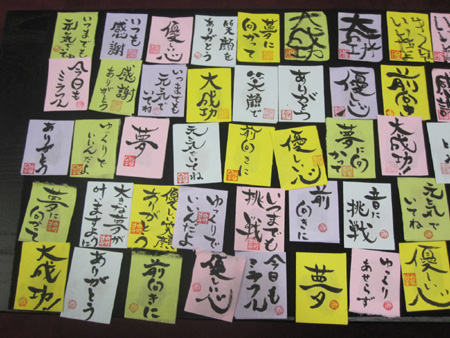 いつまでも
元気でね
いつも
感謝
優しい心
笑顔を
ありがとう
夢に
向かって
大成功
大成功
今日も
ミラクル
感謝
ありがとう
いつまでも
元気で
いてね
大成功
笑顔で
ありがとう
優しい心
ありがとう
ゆっくりで
いいんだよ
夢
元気で
いてね
前向きに
優しい心
夢に
向かって
大成功!
夢に
向かって
大きな夢が
叶いますように
優しい笑顔
ありがとう
ゆっくりで
いいんだよ
いつまでも
挑戦
前
向きに
挑戦
元気で
いてね
大成功!
ありがとう
前向きに
優しい心
今日も
ミラクル
夢
ゆっくり
あせらず
優しい心